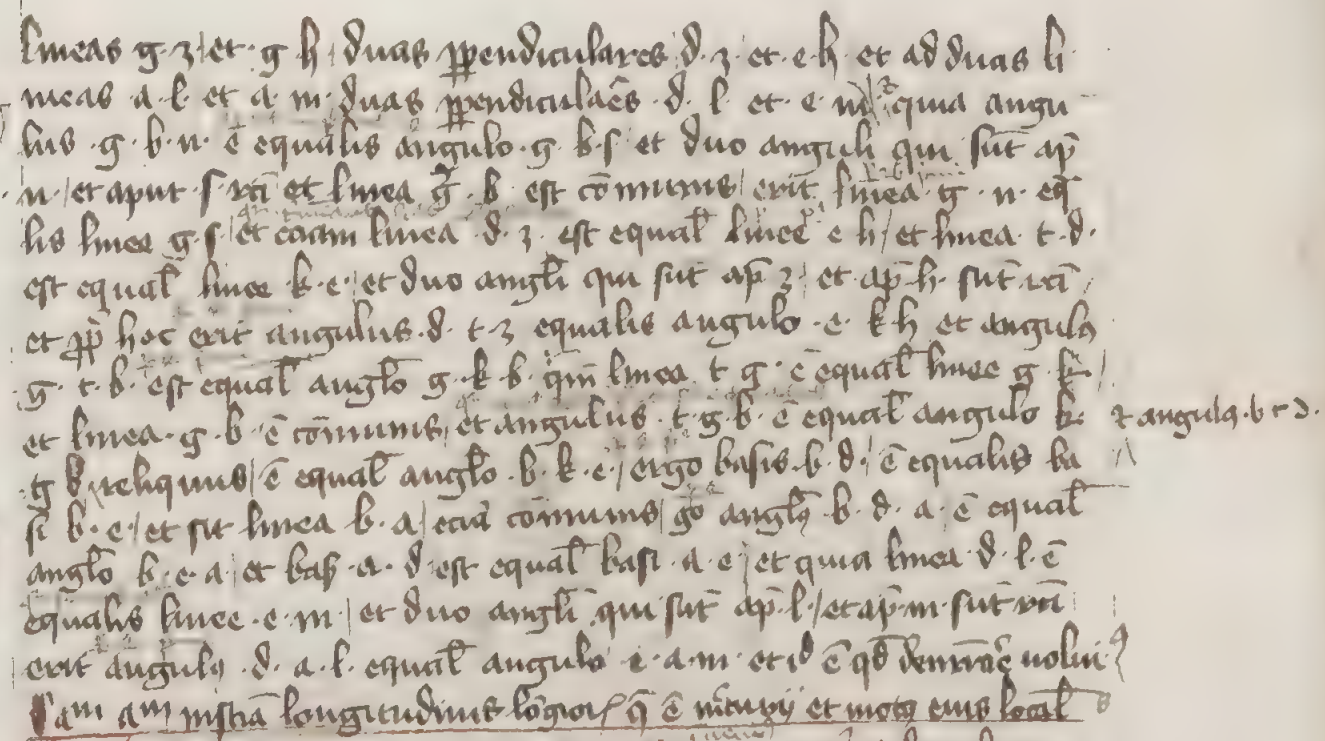 lineas g z et · g h duas ꝑpendiculares · d · z · et · e · h et ad duas li
neas · a · l · et · a · m · duas ꝑpendiculaēs · d · l · et · e · m quia angu
lus · g · b · n · ē equalis angulo · g · b · s et duo anguli qui sūt ap̄
n · et aput · s · rc̄i et linea g · b · est cōmunis erit linea · g · n · eq̄
lis linee g · s et eciam linea · d · z · est equal̄ linee e h et linea · t · d ·
est equal̄ linee k · e · et duo angl̄i qui sūt ap̄ z et ap̄ h · sūt rc̄i
et ꝓp̄ hoc erit angulus · d · t · z equalis angulo · e · k h et angulꝰ
g · t · b · est equal̄ angl̄o g · k · b · qm̄ linea t g · ē equal̄ linee g · k
et linea · g · b · ē cōmunis et angulus · t · g · b · ē equal̄ angulo k · ⁊ angulꝰ · b · t · d ·
g b reliquus ē equal̄ angl̄o · b · k · e · ergo basis · b · d · ē equalis ba
si b · e · et sit linea b · a eciā cōmunis gͦ anglꝰ b · d · a · ē equal̄
angl̄o b · e · a et bas̄ · a · d est equal̄ basi · a · e et quia linea d · l · ē
equalis linee · e · m · et duo angl̄i qui sūt ap̄ · l · et ap̄ · m · sūt rc̄i
erit angulꝰ · d · a · l · equal̄ angulo e · a · m · et id ē qd̄ uolui
longitudinis ē mͨurij et motꝰ eius local̄